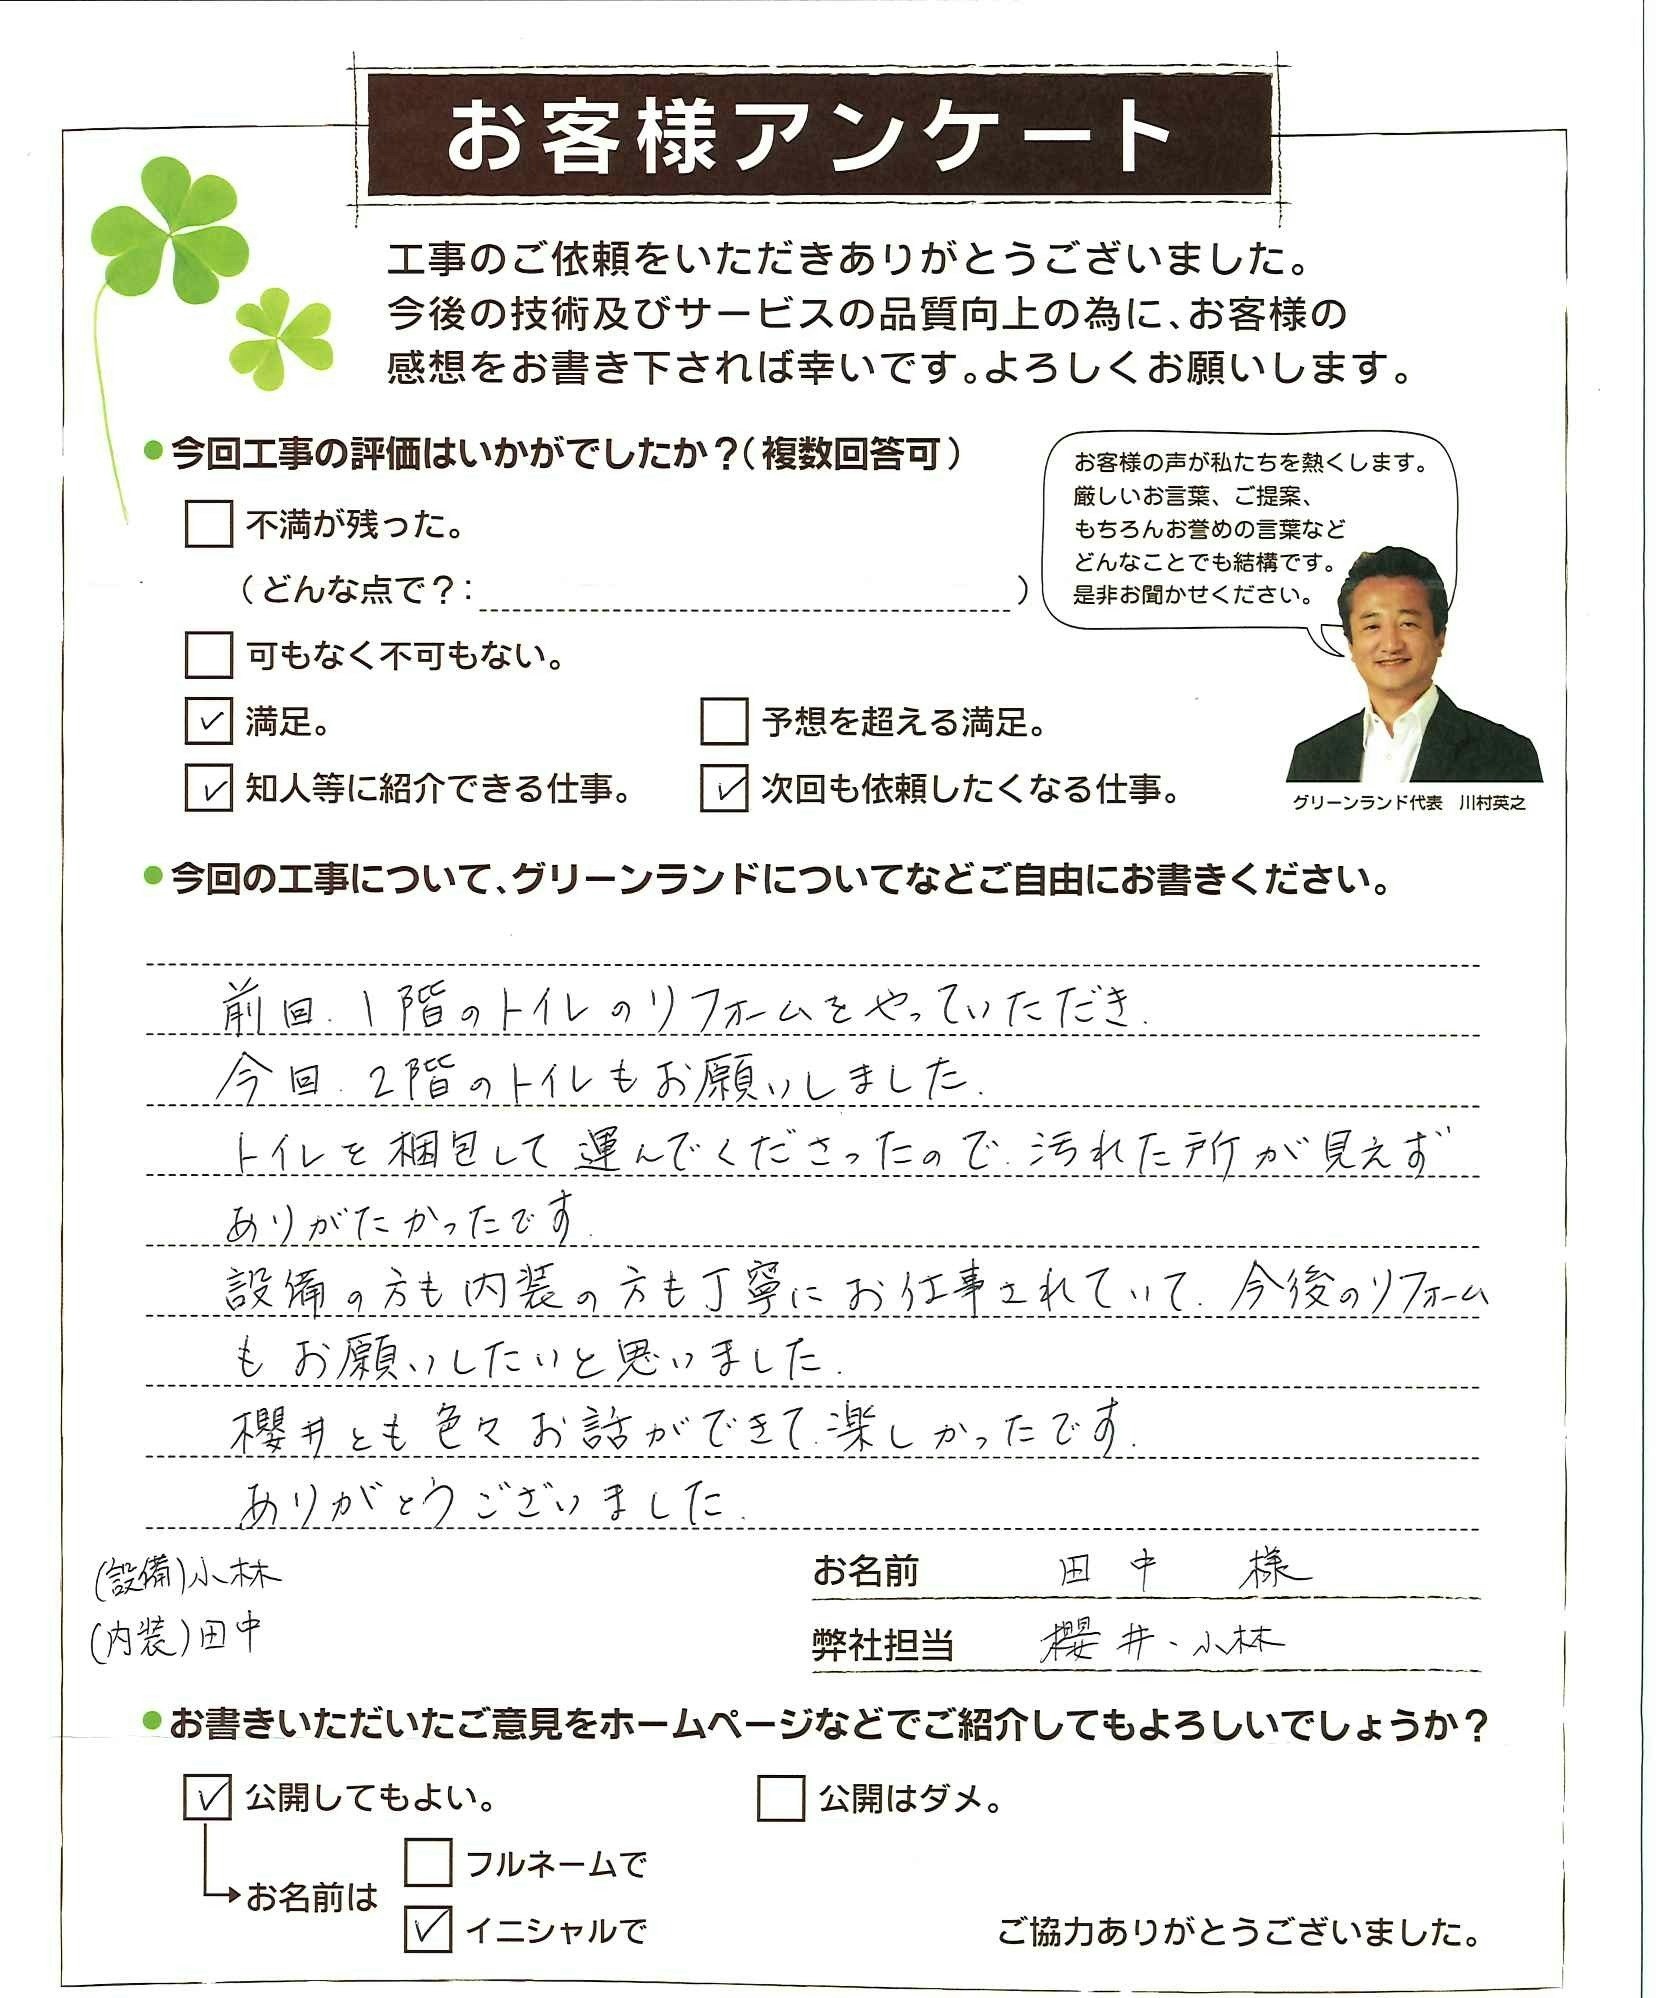 お客様アンケート
工事のご依頼をいただきありがとうございました。
今後の技術及びサービスの品質向上の為に、お客様の
感想をお書き下されば幸いです。よろしくお願いします。
●今回工事の評価はいかがでしたか?(複数回答可)
お客様の声が私たちを熱くします。
厳しいお言葉、ご提案、
もちろんお誉めの言葉など
どんなことでも結構です。
是非お聞かせください。
グリーンランド代表 川村英之
□ 不満が残った。
(どんな点で?: )
□ 可もなく不可もない。
☑ 満足。 □ 予想を超える満足。
☑ 知人等に紹介できる仕事。 ☑ 次回も依頼したくなる仕事。
●今回の工事について、グリーンランドについてなどご自由にお書きください。
前回、1階のトイレのリフォームをやっていただき、
今回、2階のトイレもお願いしました。
トイレを梱包して運んでくださったので、汚れた所が見えず
ありがたかったです。
設備の方も内装の方も丁寧にお仕事されていて、今後のリフォーム
もお願いしたいと思いました。
櫻井とも色々お話ができて、楽しかったです。
ありがとうございました。
(設備)小林
(内装)田中
お名前 田中 様
弊社担当 櫻井・小林
●お書きいただいたご意見をホームページなどでご紹介してもよろしいでしょうか?
☑ 公開してもよい。 □ 公開はダメ。
→お名前は
□ フルネームで
☑ イニシャルで
ご協力ありがとうございました。